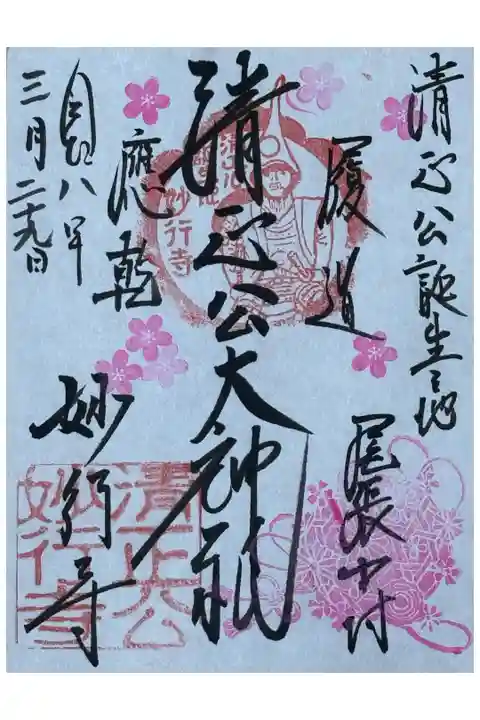 清正公誕生之地
尾張中村
履道
清正公大神祇
應乾
妙行寺
八年
三月二十九日
清正公
誕生地
妙行寺
清正公
妙行寺